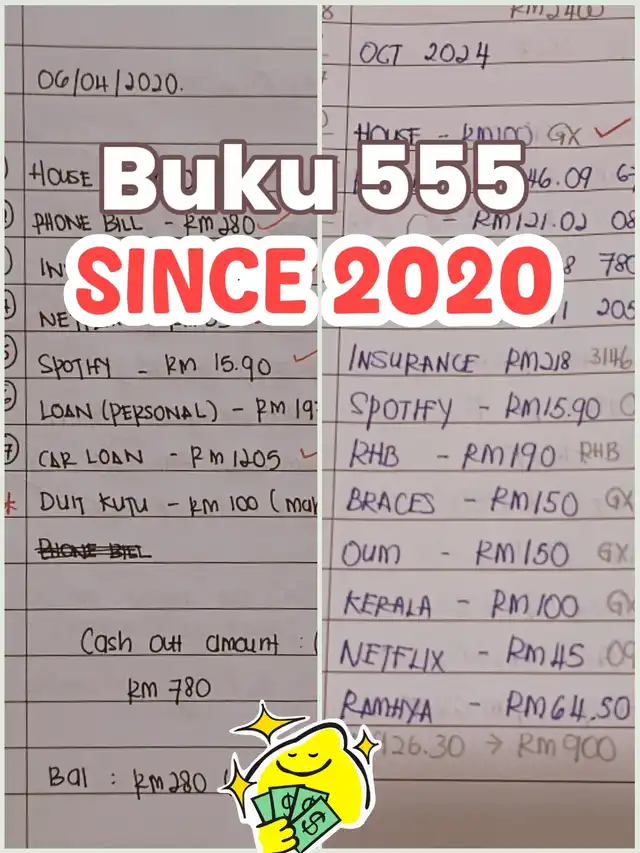 Buku 555
SINCE 2020
06/04/2020.
HOUSE
PHONE BILL - RM 280
SPOTIFY - RM 15.90
LOAN (PERSONAL) - RM 19
CAR LOAN - RM 1205
DUIT KUTU - RM 100
PHONE BILL
Cash out amount :
RM 780
Bal : RM 280
RM2400
OCT 2024
HOUSE - RM100 GX
46.09
- RM121.02 08
8 780
1 205
INSURANCE RM218 3146
SPOTIFY - RM15.90
RHB - RM190 RHB
BRACES - RM150 GX
OUM - RM150 GX
KERALA - RM100 GX
NETFLIX - RM45 09
RAMHYA - RM64.50
126.30 → RM900